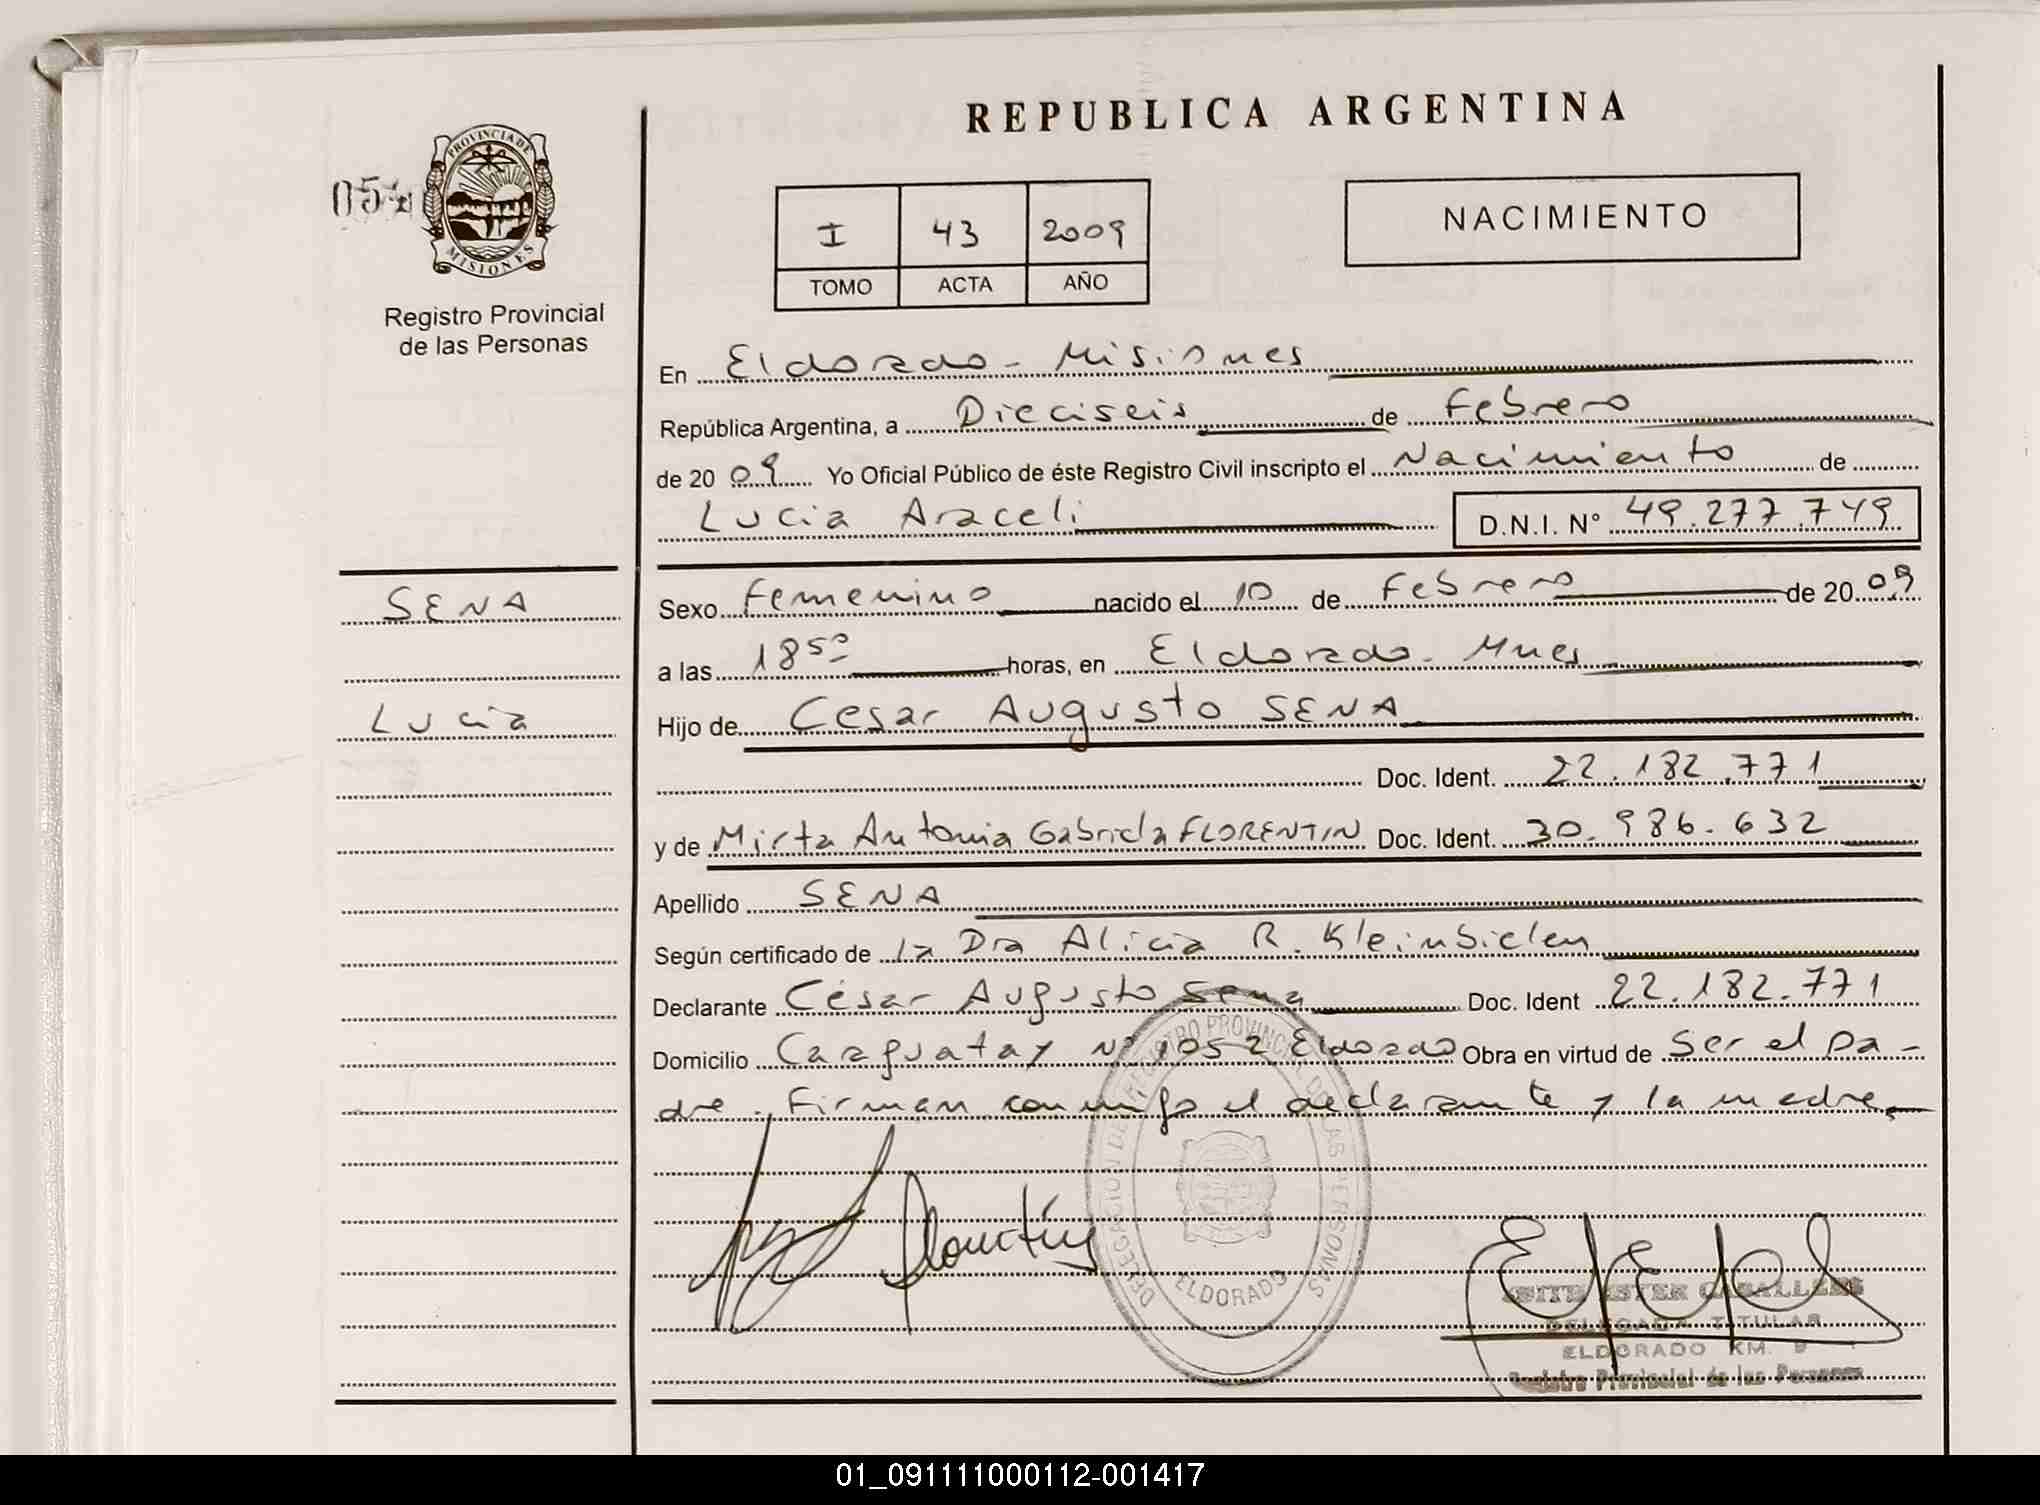 REPUBLICA ARGENTINA
PROVINCIA DE
MISIONES
Registro Provincial
de las Personas
I 43 2009
TOMO ACTA AÑO
NACIMIENTO
En Eldorado - Misiones
República Argentina, a Dieciseis de Febrero
de 20 09 Yo Oficial Público de éste Registro Civil inscripto el Nacimiento de
Lucia Araceli D.N.I. N° 49.277.749
SENA
Lucia
Sexo Femenino nacido el 10 de Febrero de 20 09
a las 18 50 horas, en Eldorado - Mnes
Hijo de Cesar Augusto SENA
Doc. Ident. 22.182.771
y de Mirta Antonia Gabriela FLORENTIN Doc. Ident. 30.986.632
Apellido SENA
Según certificado de la Dra Alicia R. Kleinbielen
Declarante César Augusto Sena Doc. Ident 22.182.771
Domicilio Caraguatay N° 1052 Eldorado Obra en virtud de Ser el Pa-
dre., Firman conmigo el declarante y la madre.
DELEGACION DEL REGISTRO PROVINCIAL DE LAS PERSONAS
ELDORADO
ESTER CABALLERO
DELEGADA TITULAR
ELDORADO KM. 9
Registro Provincial de las Personas
01_091111000112-001417